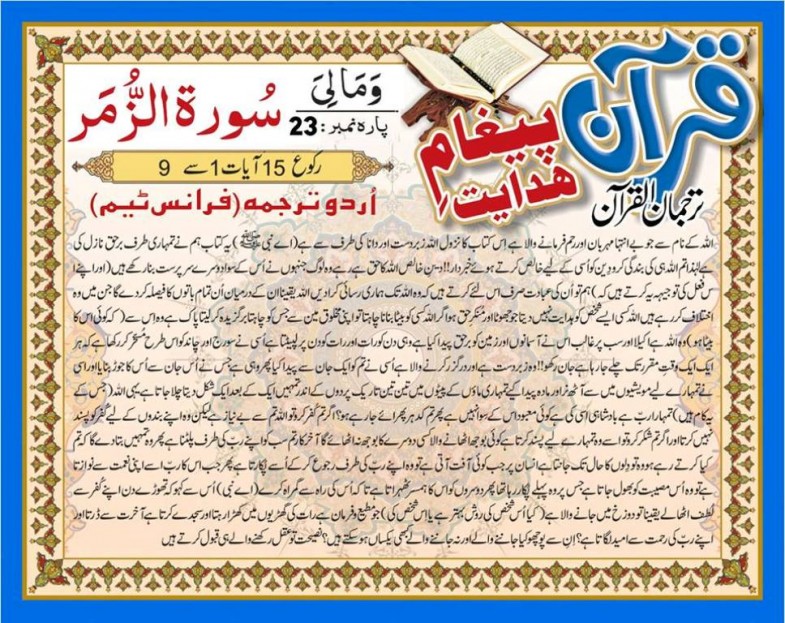 قرآن
پیغامِ
ھدایت
ترجمان القرآن
وَمَالِیَ
پارہ نمبر: 23
سُورۃ الزُّمَر
رکوع 15 آیات 1 سے 9
اُردو ترجمہ (فرانس ٹیم)
اللہ کے نام سے جو بے انتہا مہربان اور رحم فرمانے والا ہے اس کتاب کا نزول اللہ زبردست اور دانا کی طرف سے ہے (اے نبی ﷺ) یہ کتاب ہم نے تمہاری طرف برحق نازل کی
ہے لہٰذا تم اللہ ہی کی بندگی کرو دین کو اُسی کے لیے خالص کرتے ہوئے خبردار!! دین خالص اللہ کا حق ہے رہے وہ لوگ جنہوں نے اُس کے سوا دوسرے سرپرست بنا رکھے ہیں (اور اپنے ا
س فعل کی توجیہہ یہ کرتے ہیں کہ) ہم تو اُن کی عبادت صرف اس لئے کرتے ہیں کہ وہ اللہ تک ہماری رسائی کرا دیں اللہ یقینا ان کے درمیان اُن تمام باتوں کا فیصلہ کر دے گا جن میں وہ
اختلاف کر رہے ہیں اللہ کسی ایسے شخص کو ہدایت نہیں دیتا جو جھوٹا اور منکر حق ہو اگر اللہ کسی کو بیٹا بنانا چاہتا تو اپنی مخلوق میں سے جس کو چاہتا برگزیدہ کر لیتا پاک ہے وہ اس سے (کہ کوئی اس کا
بیٹا ہو) وہ اللہ ہے اکیلا اور سب پر غالب اس نے آسمانوں اور زمین کو برحق پیدا کیا ہے وہی دن کو رات اور رات کو دن پر لپیٹتا ہے اُسی نے سورج اور چاند کو اس طرح مُسخّر کر رکھا ہے کہ ہر
ایک ایک وقتِ مقرر تک چلے جا رہا ہے جان رکھو!! وہ زبردست ہے اور درگزر کرنے والا ہے اُسی نے تم کو ایک جان سے پیدا کیا پھر وہی ہے جس نے اُس جان سے اُس کا جوڑ بنایا اور اسی
نے تمہارے لیے مویشیوں میں سے آٹھ نر اور مادہ پیدا کیے تمہاری ماؤں کے پیٹوں میں تین تین تاریک پردوں کے اندر تمہیں ایک کے بعد ایک شکل دیتا چلا جاتا ہے یہی اللہ (جس کے
یہ کام ہیں) تمہارا رب ہے بادشاہی اسی کی ہے کوئی معبود اس کے سوا نہیں ہے پھر تم کدھر پھرائے جا رہے ہو؟ اگر تم کفر کرو تو اللہ تم سے بے نیاز ہے لیکن وہ اپنے بندوں کے لیے کفر کو پسند
نہیں کرتا اور اگر تم شکر کرو تو اسے وہ تمہارے لیے پسند کرتا ہے کوئی بوجھ اٹھانے والا کسی دوسرے کا بوجھ نہ اٹھائے گا آخر کار تم سب کو اپنے ربّ کی طرف پلٹنا ہے پھر وہ تمہیں بتا دے گا کہ تم
کیا کرتے رہے ہو وہ تو دلوں کا حال تک جانتا ہے انسان پر جب کوئی آفت آتی ہے تو وہ اپنے ربّ کی طرف رجوع کر کے اُسے پکارتا ہے پھر جب اس کا ربّ اسے اپنی نعمت سے نوازتا
ہے تو وہ اُس مصیبت کو بھول جاتا ہے جس پر وہ پہلے پکار رہا تھا پھر دوسروں کو اس کا ہمسر ٹھہراتا ہے تا کہ اُس کی راہ سے گمراہ کرے (اے نبی) اُس سے کہو کہ تھوڑے دن اپنے کفر سے
لطف اٹھا لے یقینا تو دوزخ میں جانے والا ہے (کیا اُس شخص کی روش بہتر ہے یا اس شخص کی) جو مطیع و فرمان ہے رات کی گھڑیوں میں کھڑا رہتا اور سجدے کرتا ہے آخرت سے ڈرتا اور
اپنے ربّ کی رحمت سے امید لگاتا ہے؟ ان سے پوچھو کیا جاننے والے اور نہ جاننے والے بھی یکساں ہو سکتے ہیں؟ نصیحت تو عقل رکھنے والے ہی قبول کرتے ہیں